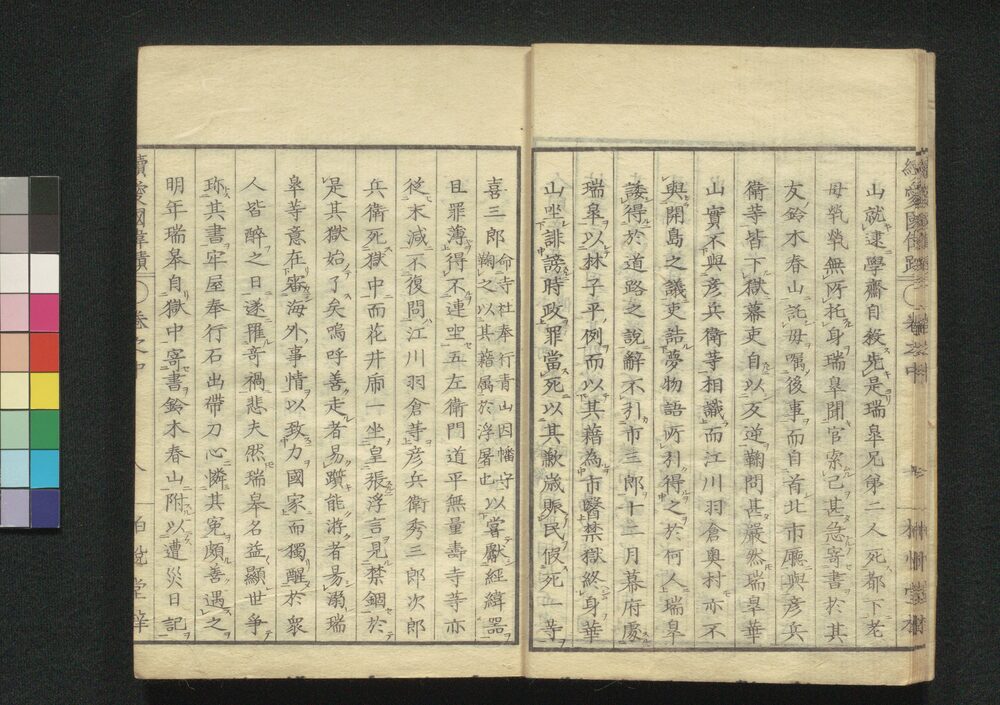 山就逮學齋自殺先是瑞皐兄弟二人死都下老
母煢煢無所托身瑞皐聞官索己甚急寄書於其
友鈴木春山託母嘱後事而自首北市廳與彦兵
衛等皆下獄幕吏自以反逆鞠問甚嚴然瑞皐華
山實不與彦兵衛等相識而江川羽倉奥村亦不
與開島之議吏詰夢物語所引得之於何人瑞皐
諉得於道路之說辭不引市三郎十二月幕府處
瑞皐以林子平例而以其藉為市醫禁獄終身華
山坐誹謗時政罪當死以其歉歳賑民假死一等
喜三郎命寺社奉行青山因幡守鞠之以其藉属於浮屠也以嘗獻經緯器
且罪薄得不連坐五左衛門道平無量壽寺等亦
從末減不復問江川羽倉等彦兵衛秀三郎次郎
兵衛死獄中而花井庿一坐皇張浮言見禁錮於
是其獄始了矣嗚呼善走者易躓能游者易溺瑞
皐等意在審海外事情以致力國家而獨醒於衆
人皆醉之日遂罹奇禍悲夫然瑞皐名益顯世争
珎其書牢屋奉行石出帶刀心憐其冤頗善遇之
明年瑞皐自獄中寄書鈴木春山附以遭災日記
續愛國偉績 巻之中